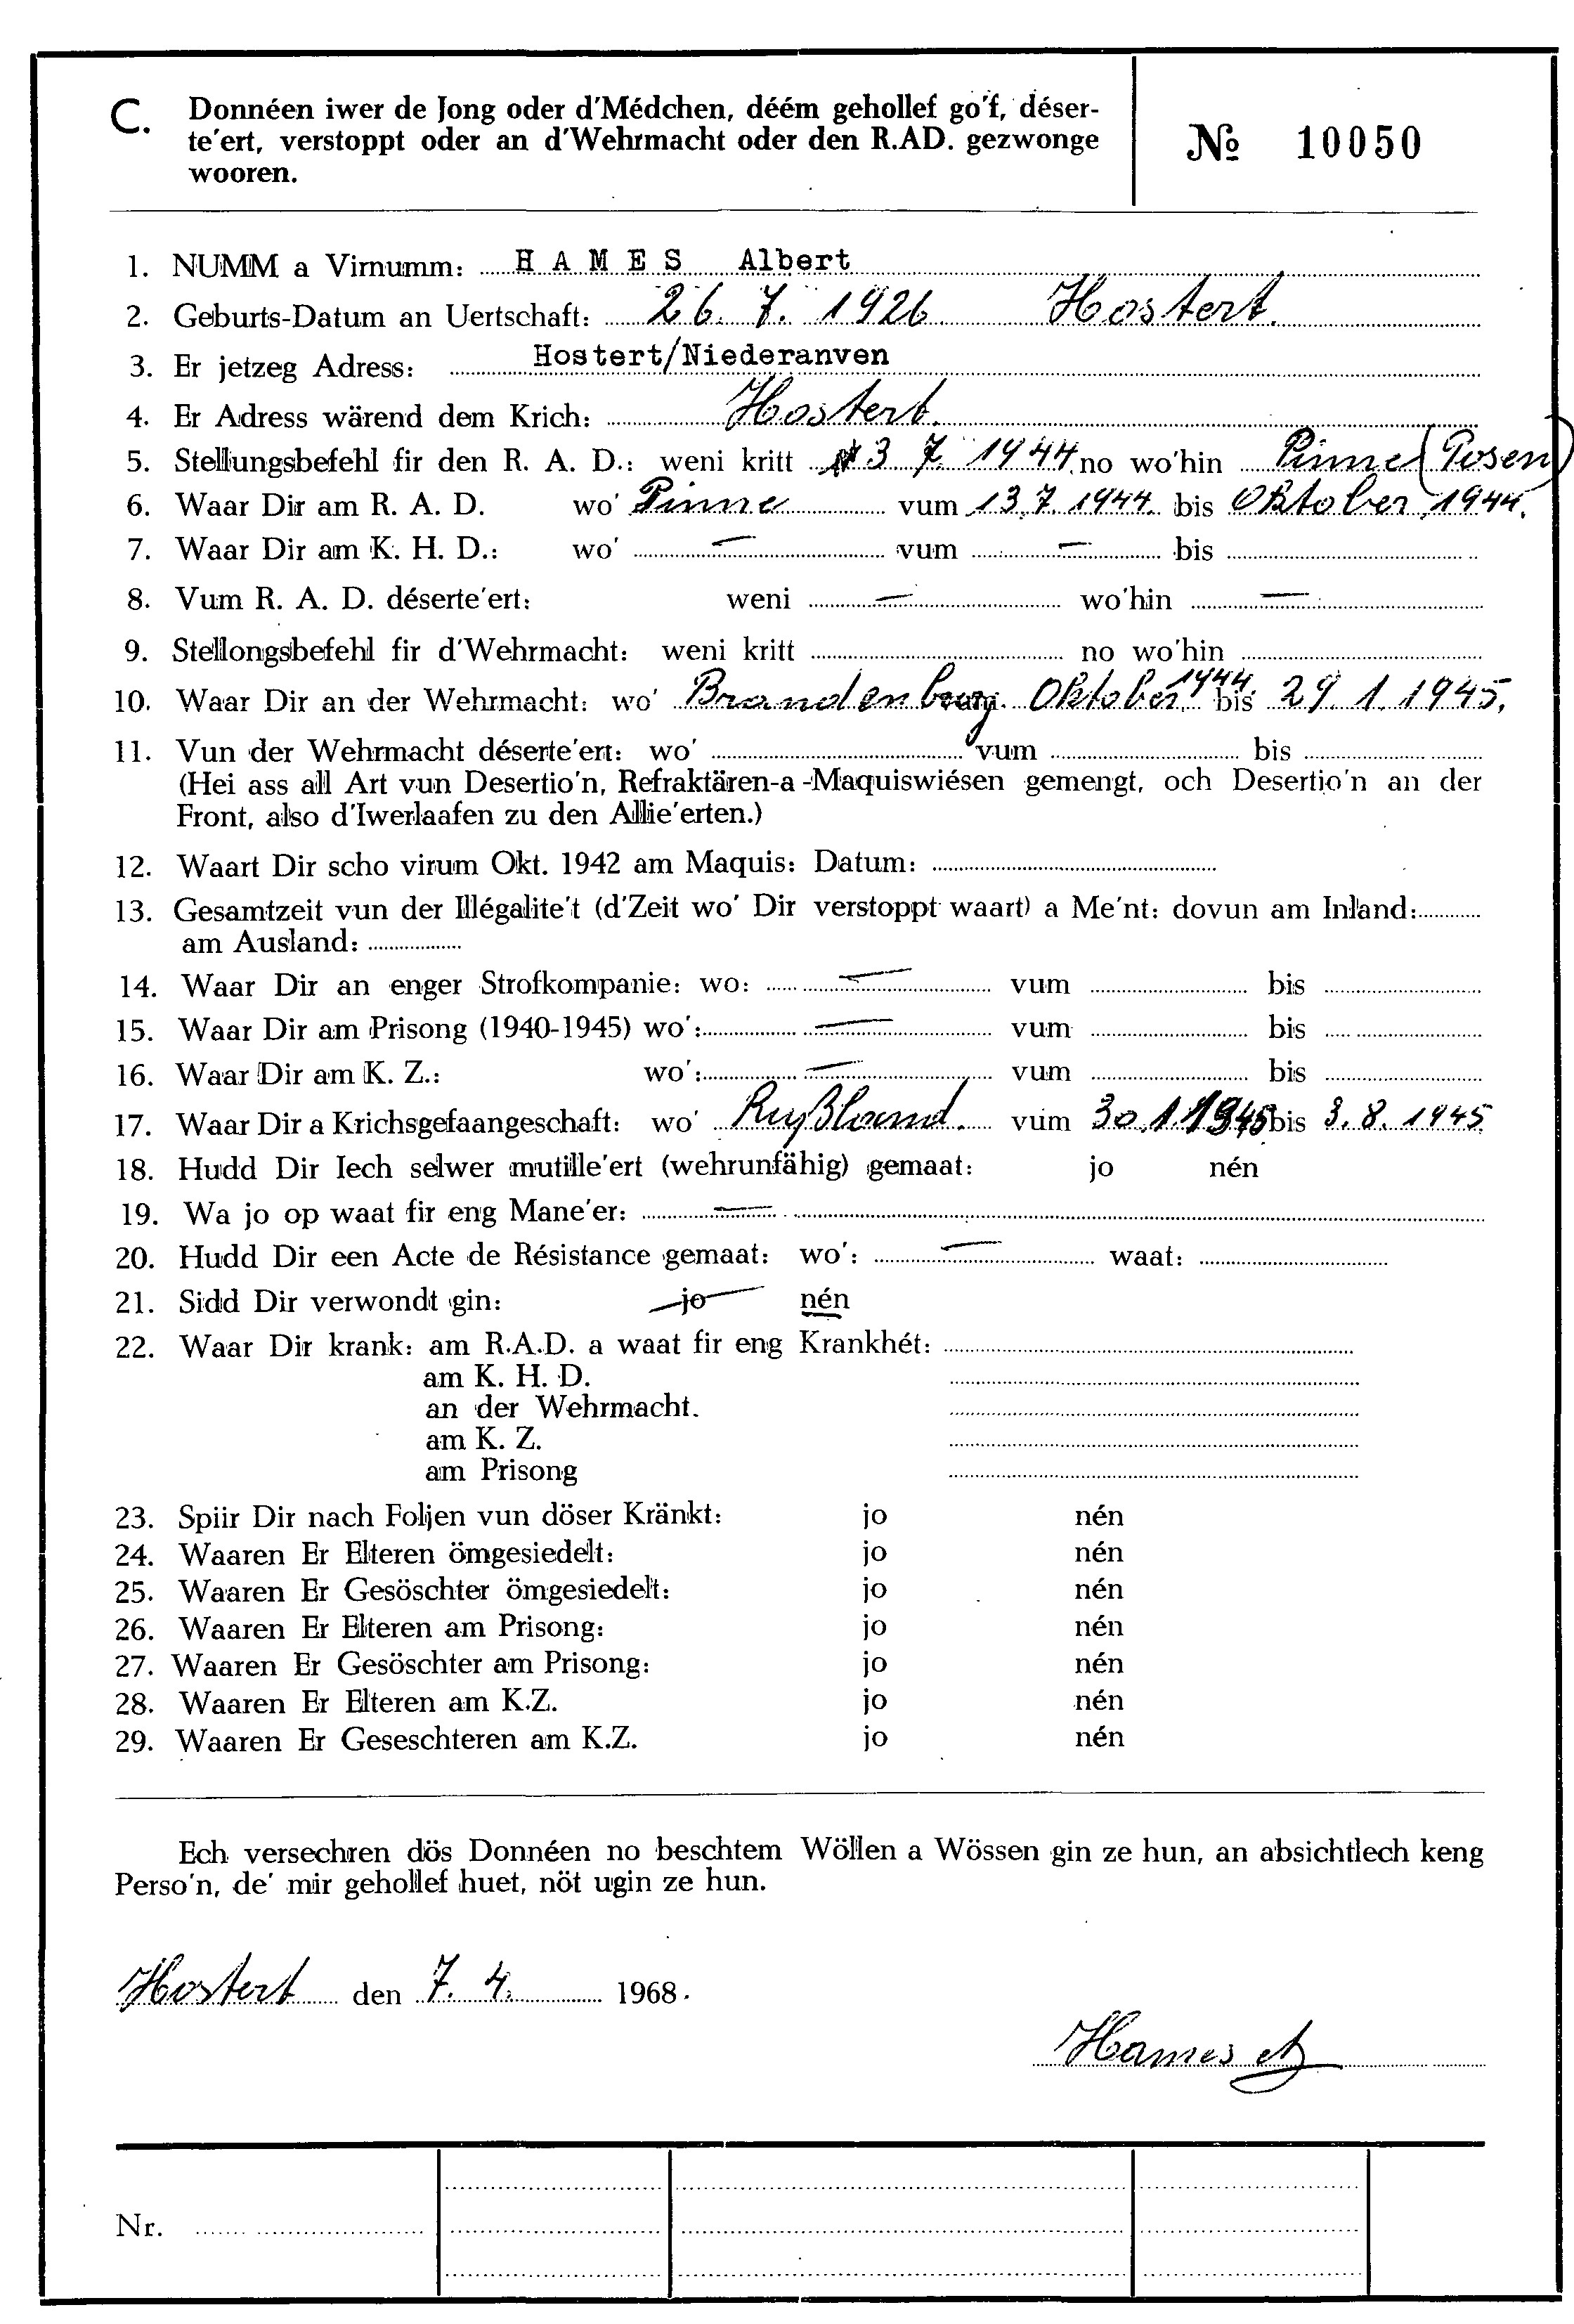 C. Donnéen iwer de Jong oder d'Médchen, déém gehollef go'f, déser-
te'ert, verstoppt oder an d'Wehrmacht oder den R.AD. gezwonge
wooren.
№ 10050
1. NUMM a Virnumm: HAMES Albert
2. Geburts-Datum an Uertschaft: 26. 7. 1926 Hostert.
3. Er jetzeg Adress: Hostert/Niederanven
4. Er Adress wärend dem Krich: Hostert.
5. Stellungsbefehl fir den R. A. D.: weni kritt 3 7. 1944 no wo'hin Pinne (Posen)
6. Waar Dir am R. A. D. wo' Pinne vum 13.7.1944. bis Oktober 1944.
7. Waar Dir am K. H. D.: wo' — vum — bis
8. Vum R. A. D. déserte'ert: weni — wo'hin —
9. Stellongsbefehl fir d'Wehrmacht: weni kritt no wo'hin
10. Waar Dir an der Wehrmacht: wo' Brandenburg. Oktober 1944. bis 29. 1. 1945.
11. Vun der Wehrmacht déserte'ert: wo' vum bis
(Hei ass all Art vun Desertio'n, Refraktären-a -Maquiswiésen gemengt, och Desertio'n an der
Front, also d'Iwerlaafen zu den Allie'erten.)
12. Waart Dir scho virum Okt. 1942 am Maquis: Datum:
13. Gesamtzeit vun der Illégalite't (d'Zeit wo' Dir verstoppt waart) a Me'nt: dovun am Inland:
am Ausland:
14. Waar Dir an enger Strofkompanie: wo: — vum bis
15. Waar Dir am Prisong (1940-1945) wo': — vum bis
16. Waar Dir am K. Z.: wo': — vum bis
17. Waar Dir a Krichsgefaangeschaft: wo' Rußland. vum 30.1.1945 bis 3. 8. 1945
18. Hudd Dir Iech selwer mutille'ert (wehrunfähig) gemaat: jo nén
19. Wa jo op waat fir eng Mane'er: —
20. Hudd Dir een Acte de Résistance gemaat: wo': — waat:
21. Sidd Dir verwondt gin: jo nén
22. Waar Dir krank: am R.A.D. a waat fir eng Krankhét:
am K. H. D.
an der Wehrmacht.
am K. Z.
am Prisong
23. Spiir Dir nach Foljen vun döser Kränkt: jo nén
24. Waaren Er Elteren ömgesiedelt: jo nén
25. Waaren Er Gesöschter ömgesiedelt: jo nén
26. Waaren Er Elteren am Prisong: jo nén
27. Waaren Er Gesöschter am Prisong: jo nén
28. Waaren Er Elteren am K.Z. jo nén
29. Waaren Er Geseschteren am K.Z. jo nén
Ech versechren dös Donnéen no beschtem Wöllen a Wössen gin ze hun, an absichtlech keng
Perso'n, de' mir gehollef huet, nöt ugin ze hun.
Hostert den 7. 4. 1968.
Hames
Nr.